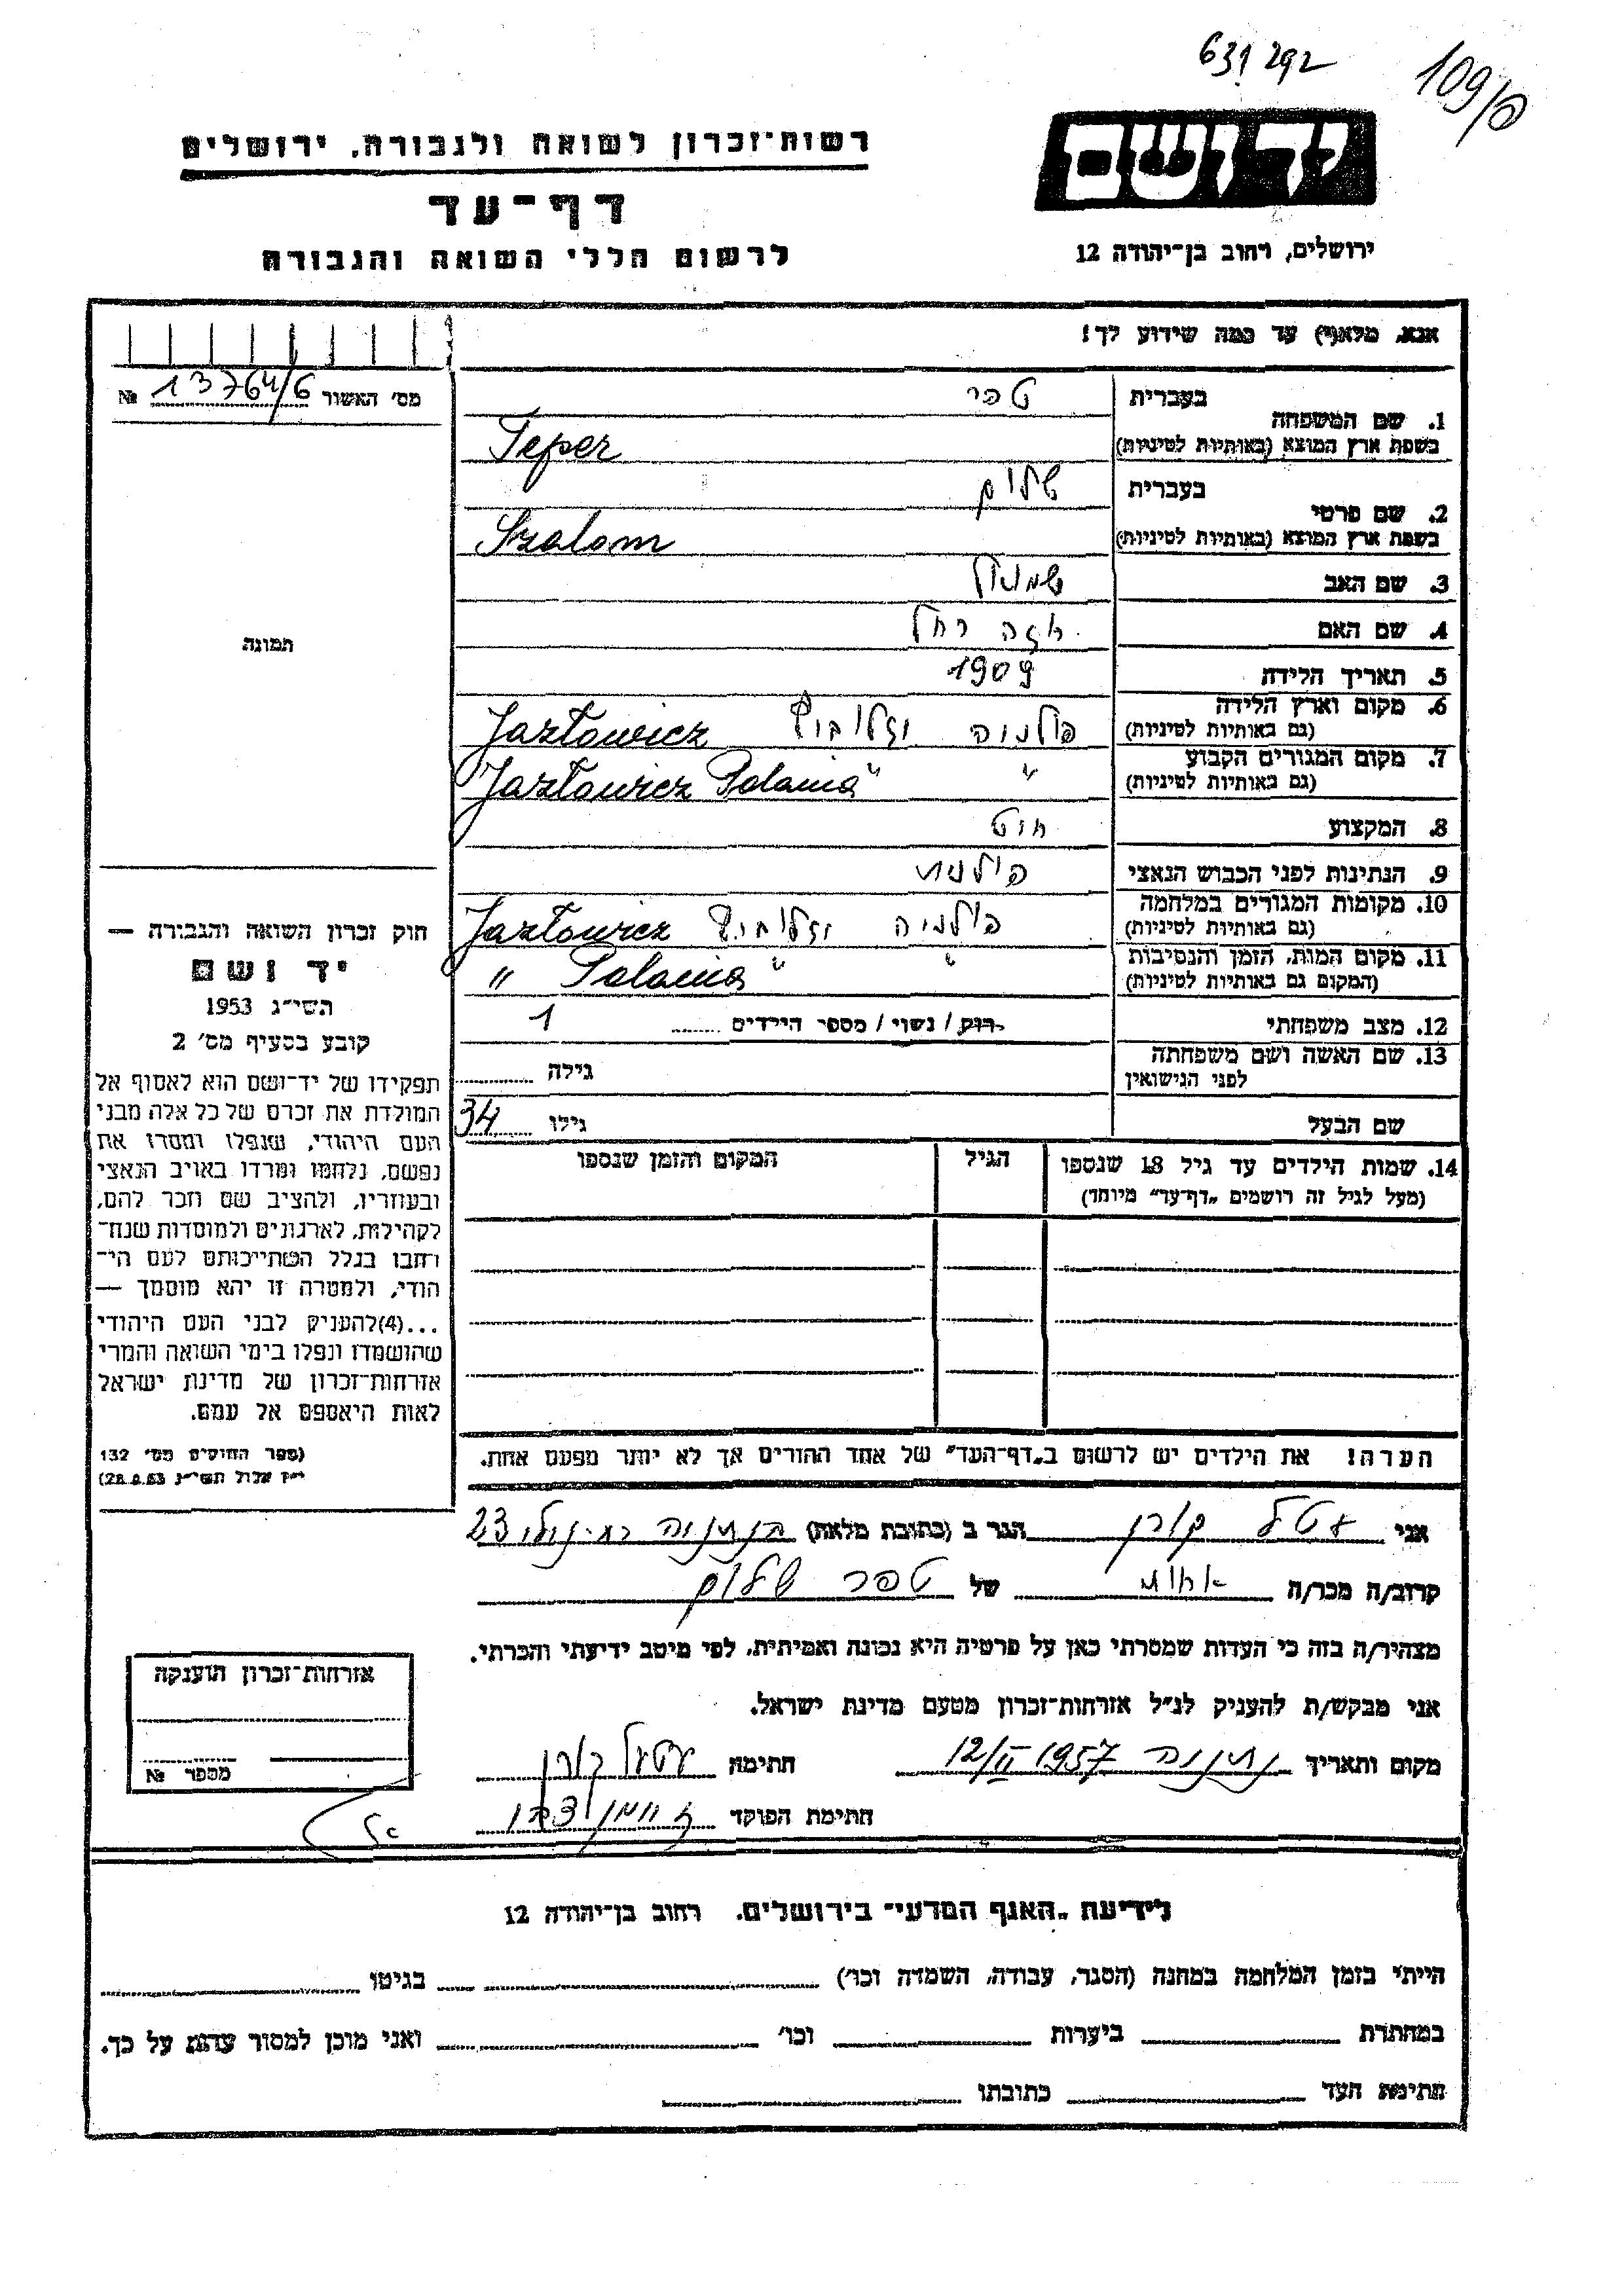 631292
109/פ
יד ושם
רשות־זכרון לשואה ולגבורה, ירושלים
דף־עד
לרשום חללי השואה והגבורה
ירושלים, רחוב בן־יהודה 12
אנא, מלא(י) עד כמה שידוע לך!
מס׳ האשור 13764/6 №
בעברית טפר
1. שם המשפחה
בשפת ארץ המוצא (באותיות לטיניות) Teper
בעברית שלום
2. שם פרטי
בשפת ארץ המוצא (באותיות לטיניות) Szalom
3. שם האב שמואל
4. שם האם רחל
5. תאריך הלידה 1909
6. מקום וארץ הלידה
(גם באותיות לטיניות) פולניה Jazłowicz
7. מקום המגורים הקבוע
(גם באותיות לטיניות) " " Jazłowicz Polania
8. המקצוע
9. הנתינות לפני הכבוש הנאצי פולנית
10. מקומות המגורים במלחמה
(גם באותיות לטיניות) פולניה Jazłowicz
11. מקום המות, הזמן והנסיבות
(המקום גם באותיות לטיניות) " " Polania "
12. מצב משפחתי רווק / נשוי / מספר הילדים 1
13. שם האשה ושם משפחתה
לפני הנישואין גילה
שם הבעל גילו 34
14. שמות הילדים עד גיל 18 שנספו
(מעל לגיל זה רושמים „דף־עד" מיוחד)
הגיל
המקום והזמן שנספו
הערה! את הילדים יש לרשום ב„דף־העד" של אחד ההורים אך לא יותר מפעם אחת.
תמונה
חוק זכרון השואה והגבורה —
יד ושם
תשי״ג 1953
קובע בסעיף מס׳ 2
תפקידו של יד־ושם הוא לאסוף אל
המולדת את זכרם של כל אלה מבני
העם היהודי, שנפלו ומסרו את
נפשם, נלחמו ומרדו באויב הנאצי
ובעוזריו, ולהציב שם וזכר להם,
לקהילות, לארגונים ולמוסדות שנח־
רחבו בגלל השתייכותם לעם הי־
הודי, ולמטרה זו יהא מוסמך —
...(4)להעניק לבני העם היהודי
שהושמדו ונפלו בימי השואה והמרי
אזרחות־זכרון של מדינת ישראל
לאות היאספם אל עמם.
(ספר החוקים מס׳ 132
י״ז אלול תשי״ג 28.8.53)
אני אטל קורן הגר ב (כתובת מלאה) בנתניה 23
קרוב/ה מכר/ה אחות של טפר שלום
מצהיר/ה בזה כי העדות שמסרתי כאן על פרטיה היא נכונה ואמיתית, לפי מיטב ידיעתי והכרתי.
אני מבקש/ת להעניק לנ״ל אזרחות־זכרון מטעם מדינת ישראל.
מקום ותאריך נתניה 12/II 1957 חתימה אטל קורן
חתימת הפוקד
אזרחות־זכרון הוענקה
מספר №
לידיעת „האגף המדעי" בירושלים, רחוב בן־יהודה 12
הייתי בזמן המלחמה במחנה (הסגר, עבודה, השמדה וכו׳) בגיטו
במחתרת ביערות וכו׳ ואני מוכן למסור עדות על כך.
חתימת העד כתובתו